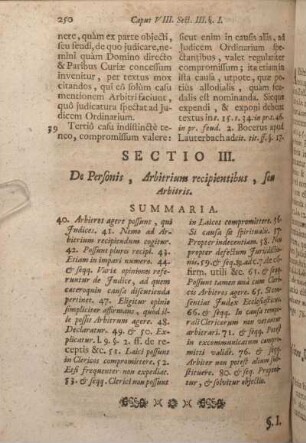 250 Caput VIII. Sect. III. §. I.
nere, quàm ex parte objecti,
seu feudi, de quo judicare, ne-
mini quàm Domino directo
& Paribus Curiæ concessum
invenitur, per textus mox
citandos, qui cò solùm casu
mentionem Arbitri faciunt,
quò judicatura spectat ad Ju-
dicem Ordinarium.
39 Tertiò casu indistinctè te-
neo, compromissum valere:
sicut enim in causa aliis, ad
Judicem Ordinarium spe-
ctantibus, valet regulariter
compromissum; ita etiam in
ista causa, utpote, quæ po-
tiùs allodialis, quàm feu-
dalis est nominanda. Sicque
expendi, & exponi debent
textus in c. 15. l. 34. in pr. & 46.
in pr. feud. 2. Bocerus apud
Lauterbach adsit. tit. ff. §. 17.
SECTIO III.
De Personis, Arbitrium recipientibus, seu
Arbitris.
SUMMARIA.
40. Arbitros agere possunt, qui
Judices. 41. Nemo ad Ar-
bitrium recipiendum cogitur.
42. Possunt plures recipi. 43.
Etiam in impari numero. 44.
& seqq. Varia opinionum refe-
runtur de Judice, ad quem
cæteroquin causa discutienda
pertinet. 47. Eligitur opinio
simpliciter affirmans, quòd il-
le possit Arbitrum agere. 48.
Declaratur. 49. & 50. Ex-
plicatur l. 9. §. 2. ff. de re-
ceptis &c. 51. Laici possunt
in Clericos compromittere. 52.
Etsi frequenter non expediat.
53. & seqq. Clerici non possunt
in Laicos compromittere. 56.
Si causa sit spiritualis. 57.
Propter indecentiam. 58. Non
propter defectum Jurisdictio-
nis. 59. & seqq. de con-
firm. utili &c. 61. & seqq.
Possunt tamen unà cum Cleri-
cis Arbitros agere. 65. Sen-
tentias Judex Ecclesiasticus.
66. & seqq. In causa tempo-
rali Clericorum non vetantur
arbitrari. 71. & seqq. Possit
in excommunicatum compro-
mitti validè. 76. & seqq.
Arbiter non potest alium sub-
stituere. 80. & seq. Propo-
nitur, & solvitur objectio.
§. I.